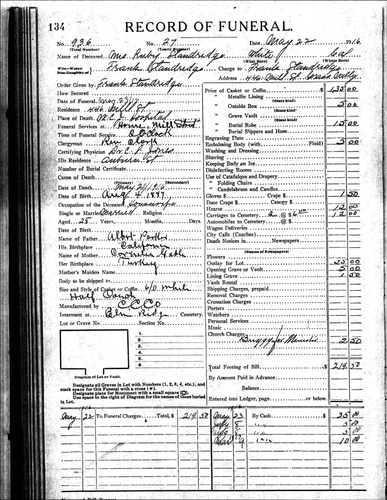 134
RECORD OF FUNERAL.
No. 936 No. 27 Date, May 22 1916
(Total Number) (Yearly Number)
Name of Deceased, Mrs. Ruby Standridge White Cal
Frank Standridge Charge to Frank Standridge
Address 446 Mill St. Grass Valley
Order Given by Frank Standridge
How Secured
Date of Funeral May 23/16
Residence 446 Mill St
Place of Death, Hospital
Funeral Services at Home, Mill Street
Time of Funeral Service, O'Clock
Clergyman Rev. Clark
Certifying Physician Dr. C. P. Jones
His Residence Auburn St
Number of Burial Certificate
Cause of Death
Date of Death May 21 1916 (Secondary)
Date of Birth Aug 4 1897
Occupation of the Deceased Housewife
Single or Married Married Religion,
Aged, 25 Years, Days
Date of Birth,
Name of Father Albert
His Birthplace California
Name of Mother Cornelia
Her Birthplace Turkey
Mother's Maiden Name
Body to be shipped to
Size and Style of Casket or Coffin 6/0 White
Half Couch
Manufactured by C. C. Co
Interment at Elm Ridge Cemetery.
Lot or Grave No. Section No.
1.
2.
3.
4.
5.
6.
Diagram of Lot or Vault.
Designate all Graves in Lot with Numbers (1, 2, 3, 4, etc.), and
mark space for this Funeral with a cross (+).
Designate place for Monument with a small square (□).
Use space to right of Diagram for names of those buried
in Lot.
Price of Casket or Coffin $ 135 00
" Metallic Lining
(State kind)
" Outside Box 5 00
(State kind)
" Grave Vault
(State kind)
" Burial Robe 15 00
" Burial Slippers and Hose
Engraving Plate
Embalming Body (with Fluid) 5 00
Washing and Dressing
Shaving
Keeping Body on Ice
Disinfecting Rooms
Use of Catafalque and Drapery
" Folding Chairs
" Candelabrum and Candles
Gloves $ Crape $ 1 50
Door Crape $ Canopy $
Hearse 12 00
Carriages to Cemetery 2 @ $6.00 12 00
Automobiles to Cemetery @ $
Wagon Deliveries
City Calls (Coaches)
Death Notices in Newspapers
(Names of Newspapers)
Flowers
Outlay for Lot 25 00
Opening Grave or Vault 5 00
Lining Grave 1 50
Vault Rental
Shipping Charges, prepaid
Removal Charges
Cremation Charges
Porters
Watchers
Personal Services
Music
Church Charges
Buggy for Minister 2 50
Total Footing of Bill $ 214 50
By Amount Paid in Advance
Balance
Entered into Ledger, page or below.
May 22 To Funeral Charges, Total, $ 214 50
May 23 By Cash $ 35 00
July 8 " " 5 00
" " 5 00
" " 10 00